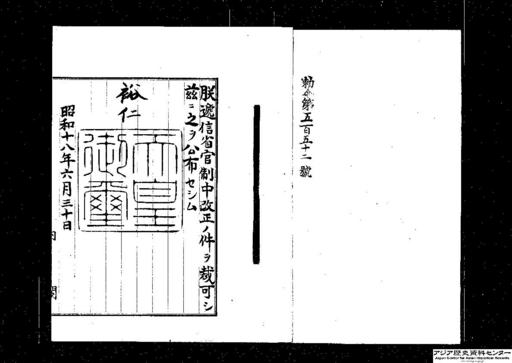 勅令第五百五十二號
朕遞信省官制中改正ノ件ヲ裁可シ
茲ニ之ヲ公布セシム
裕仁
天皇御璽
昭和十八年六月三十日
内閣
アジア歴史資料センター
Japan Center for Asian Historical Records